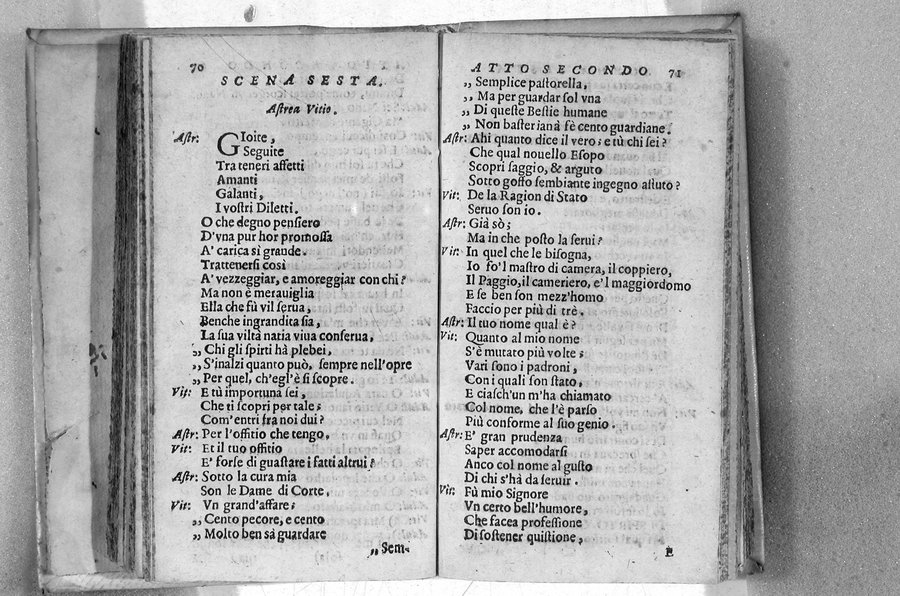 70
SCENA SESTA.
Astrea Vitio.
Astr: GIoite,
Seguite
Tra teneri affetti
Amanti
Galanti,
I vostri Diletti.
O che degno pensiero
D'vna pur hor promossa
A' carica si grande.
Trattenersi così
A' vezzeggiar, e amoreggiar con chi?
Ma non è merauiglia
Ella che fù vil serua,
Benche ingrandita sia,
La sua viltà natia viua conserua,
„ Chi gli spirti hà plebei,
„ S'inalzi quanto può, sempre nell'opre
„ Per quel, ch'egl'è si scopre.
Vit: E tù importuna sei,
Che ti scopri per tale;
Com'entri fra noi dui?
Astr: Per l'offitio che tengo,
Vit: Et il tuo offitio
E' forse di guastare i fatti altrui?
Astr: Sotto la cura mia
Son le Dame di Corte,
Vit: Vn grand'affare;
„ Cento pecore, e cento
„ Molto ben sà guardare
„ Sem-
ATTO SECONDO. 71
„ Semplice pastorella,
„ Ma per guardar sol vna
„ Di queste Bestie humane
„ Non basterianà fè cento guardiane.
Astr: Ahi quanto dice il vero; e tù chi sei?
Che qual nouello Esopo
Scopri saggio, & arguto
Sotto goffo sembiante ingegno astuto?
Vit: De la Ragion di Stato
Seruo son io.
Astr: Già sò;
Ma in che posto la serui?
Vit: In quel che le bisogna,
Io fo'l mastro di camera, il coppiero,
Il Paggio, il cameriero, e'l maggiordomo
E se ben son mezz'homo
Faccio per più di trè.
Astr: Il tuo nome qual è?
Vit: Quanto al mio nome
S'è mutato più volte;
Vari sono i padroni,
Con i quali son stato,
E ciasch'un m'ha chiamato
Col nome, che l'è parso
Più conforme al suo genio.
Astr: E' gran prudenza
Saper accomodarsi
Anco col nome al gusto
Di chi s'hà da seruir.
Vit: Fù mio Signore
Vn certo bell'humore,
Che facea professione
Di sostener quistione,
E